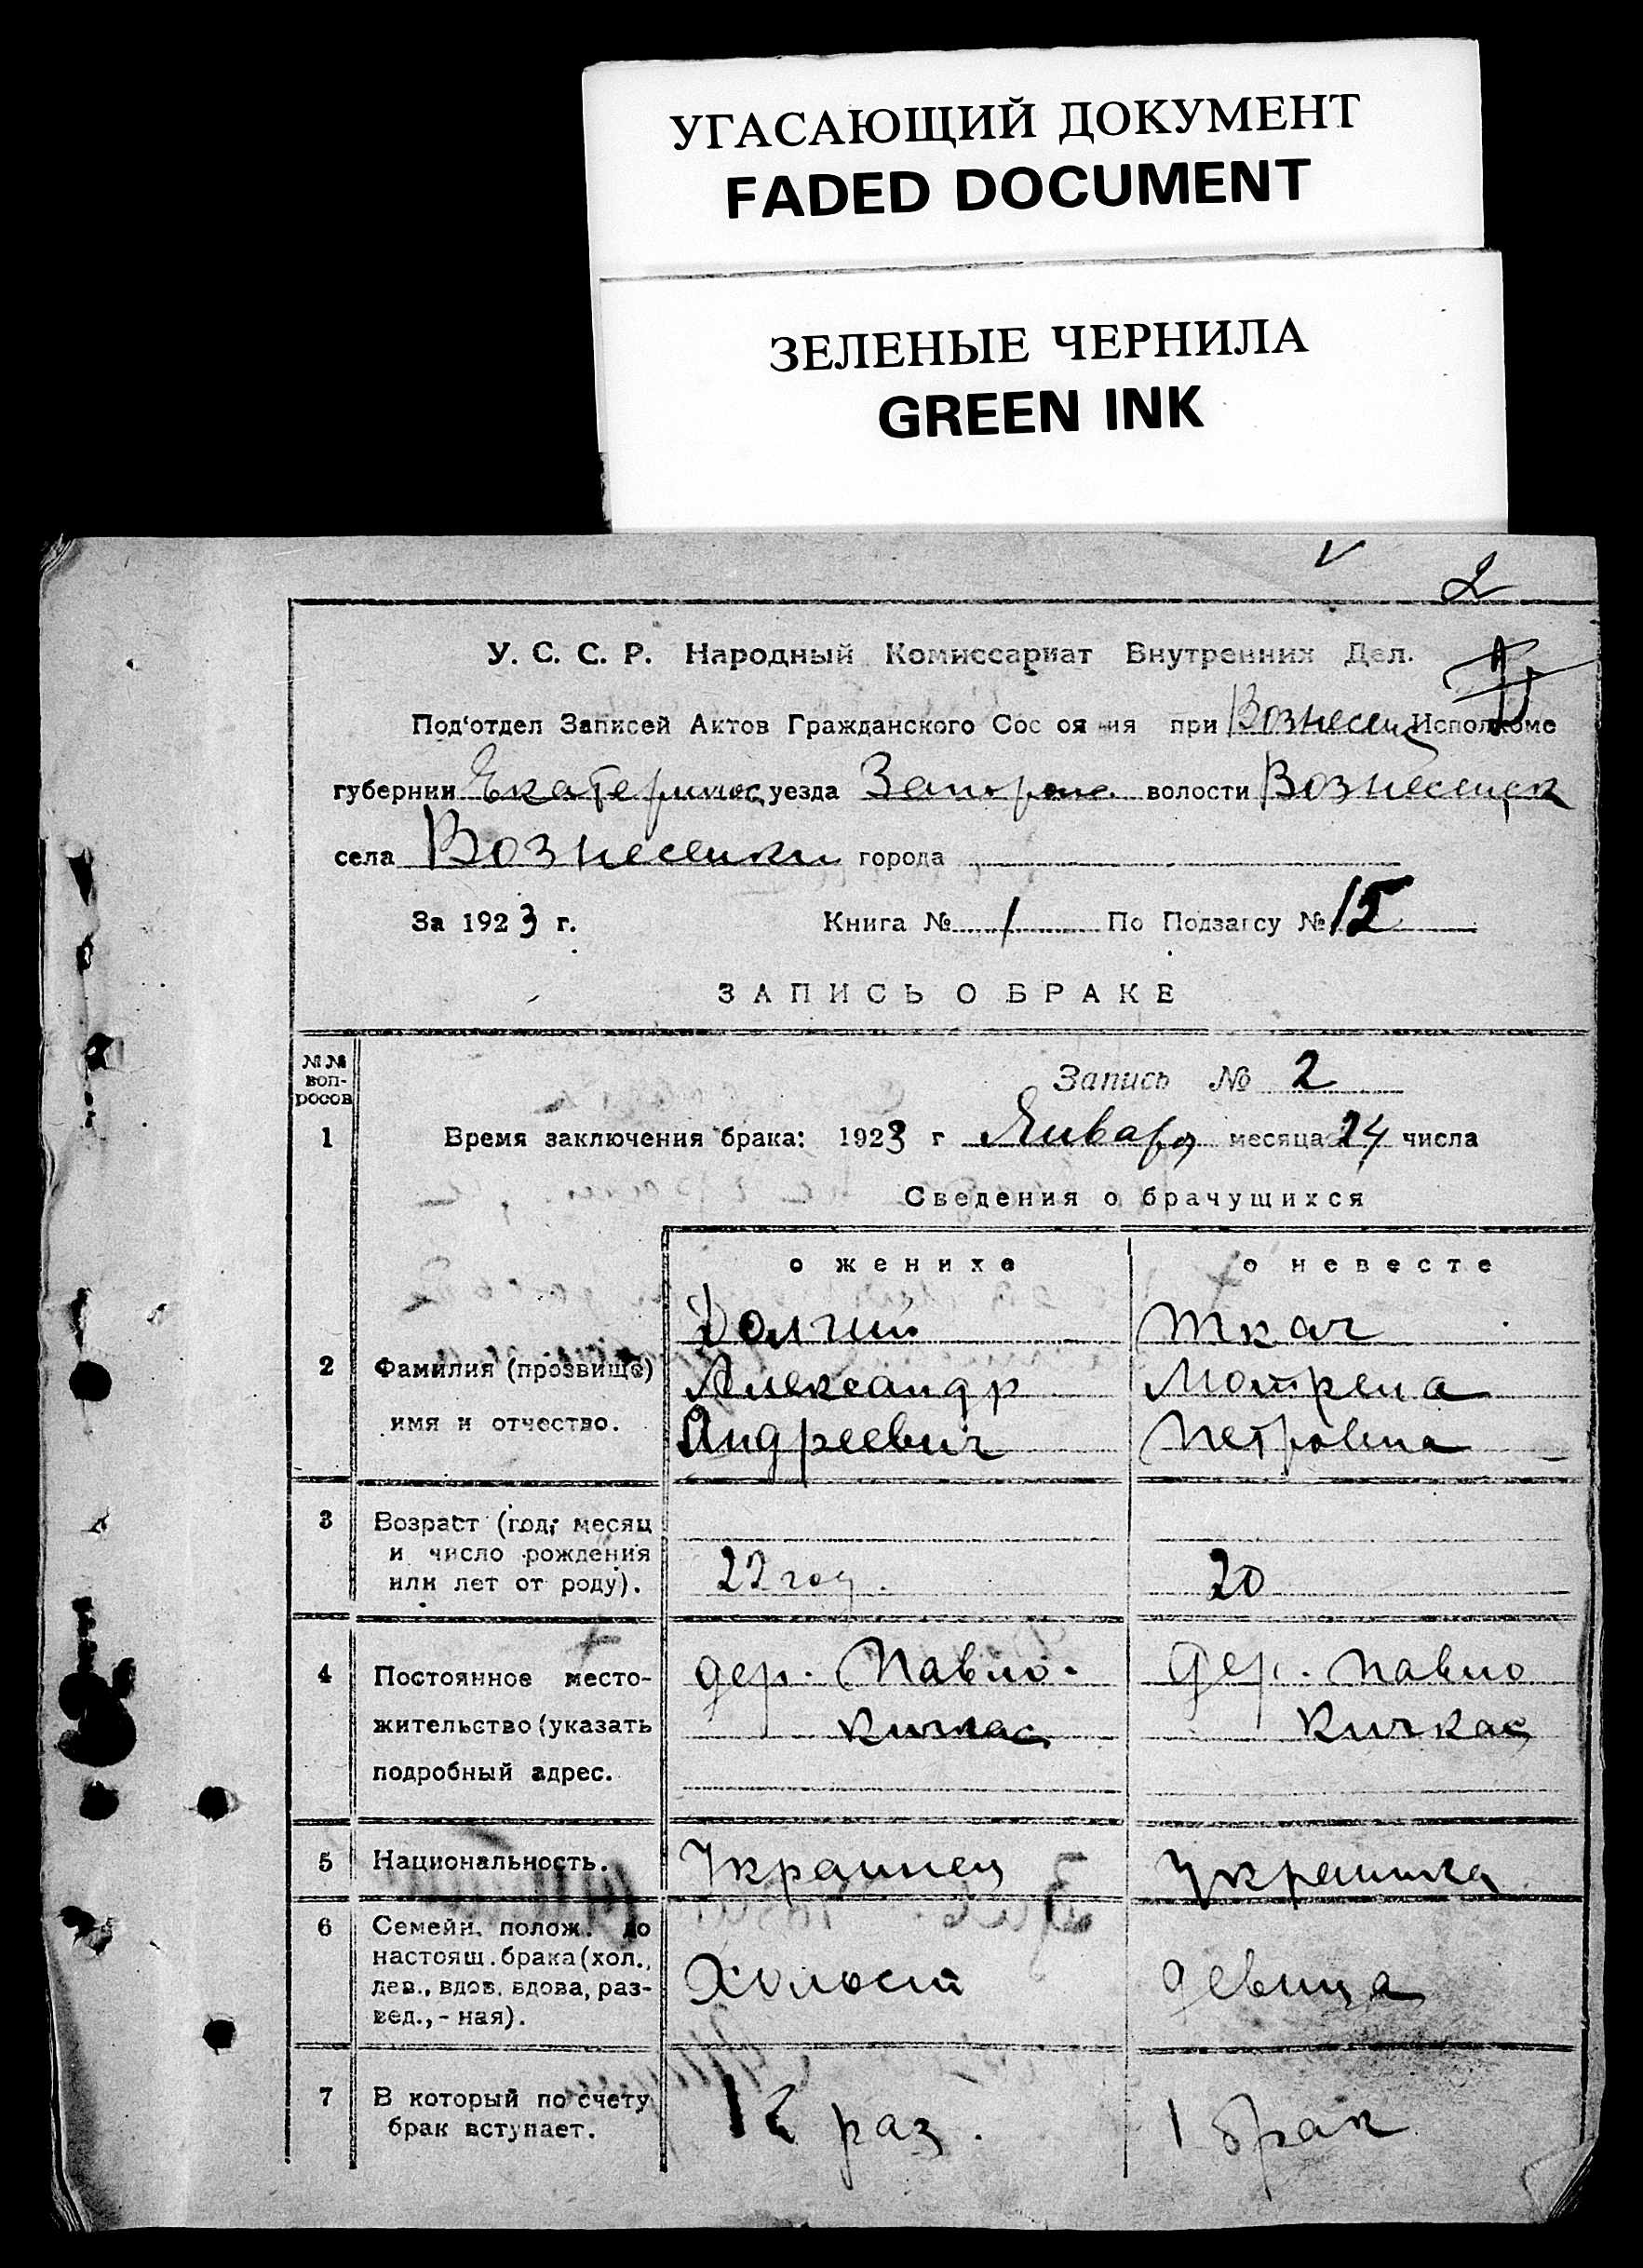 УГАСАЮЩИЙ ДОКУМЕНТ
FADED DOCUMENT
ЗЕЛЕНЫЕ ЧЕРНИЛА
GREEN INK
V
2
У. С. С. Р. Народный Комиссариат Внутренних Дел.
Под'отдел Записей Актов Гражданского Сос оя ия при Вознесенс Исполкоме
губернии Екатеринос уезда Запорож. волости Вознесенск
села Вознесенки города
За 1923 г. Книга № 1 По Подзагсу № 15
ЗАПИСЬ О БРАКЕ
№№ воп-росов
Запись № 2
1 Время заключения брака: 1923 г Января месяца 24 числа
Сведения о брачущихся
о женихе о невесте
Долгий Ткач
2 Фамилия (прозвище) Александр Мотрена
имя и отчество. Андреевич Петровна
3 Возраст (год, месяц
и число рождения
или лет от роду). 22 год. 20
4 Постоянное место- дер. Павло- дер. Павло
жительство (указать Кичкас Кичкас
подробный адрес.
5 Национальность. Украинец Украинка
6 Семейн. полож. до
настоящ. брака (хол.,
дев., вдов. вдова, раз- Холост девица
вед., - ная).
7 В который по счету 1й раз. 1 брак
брак вступает.